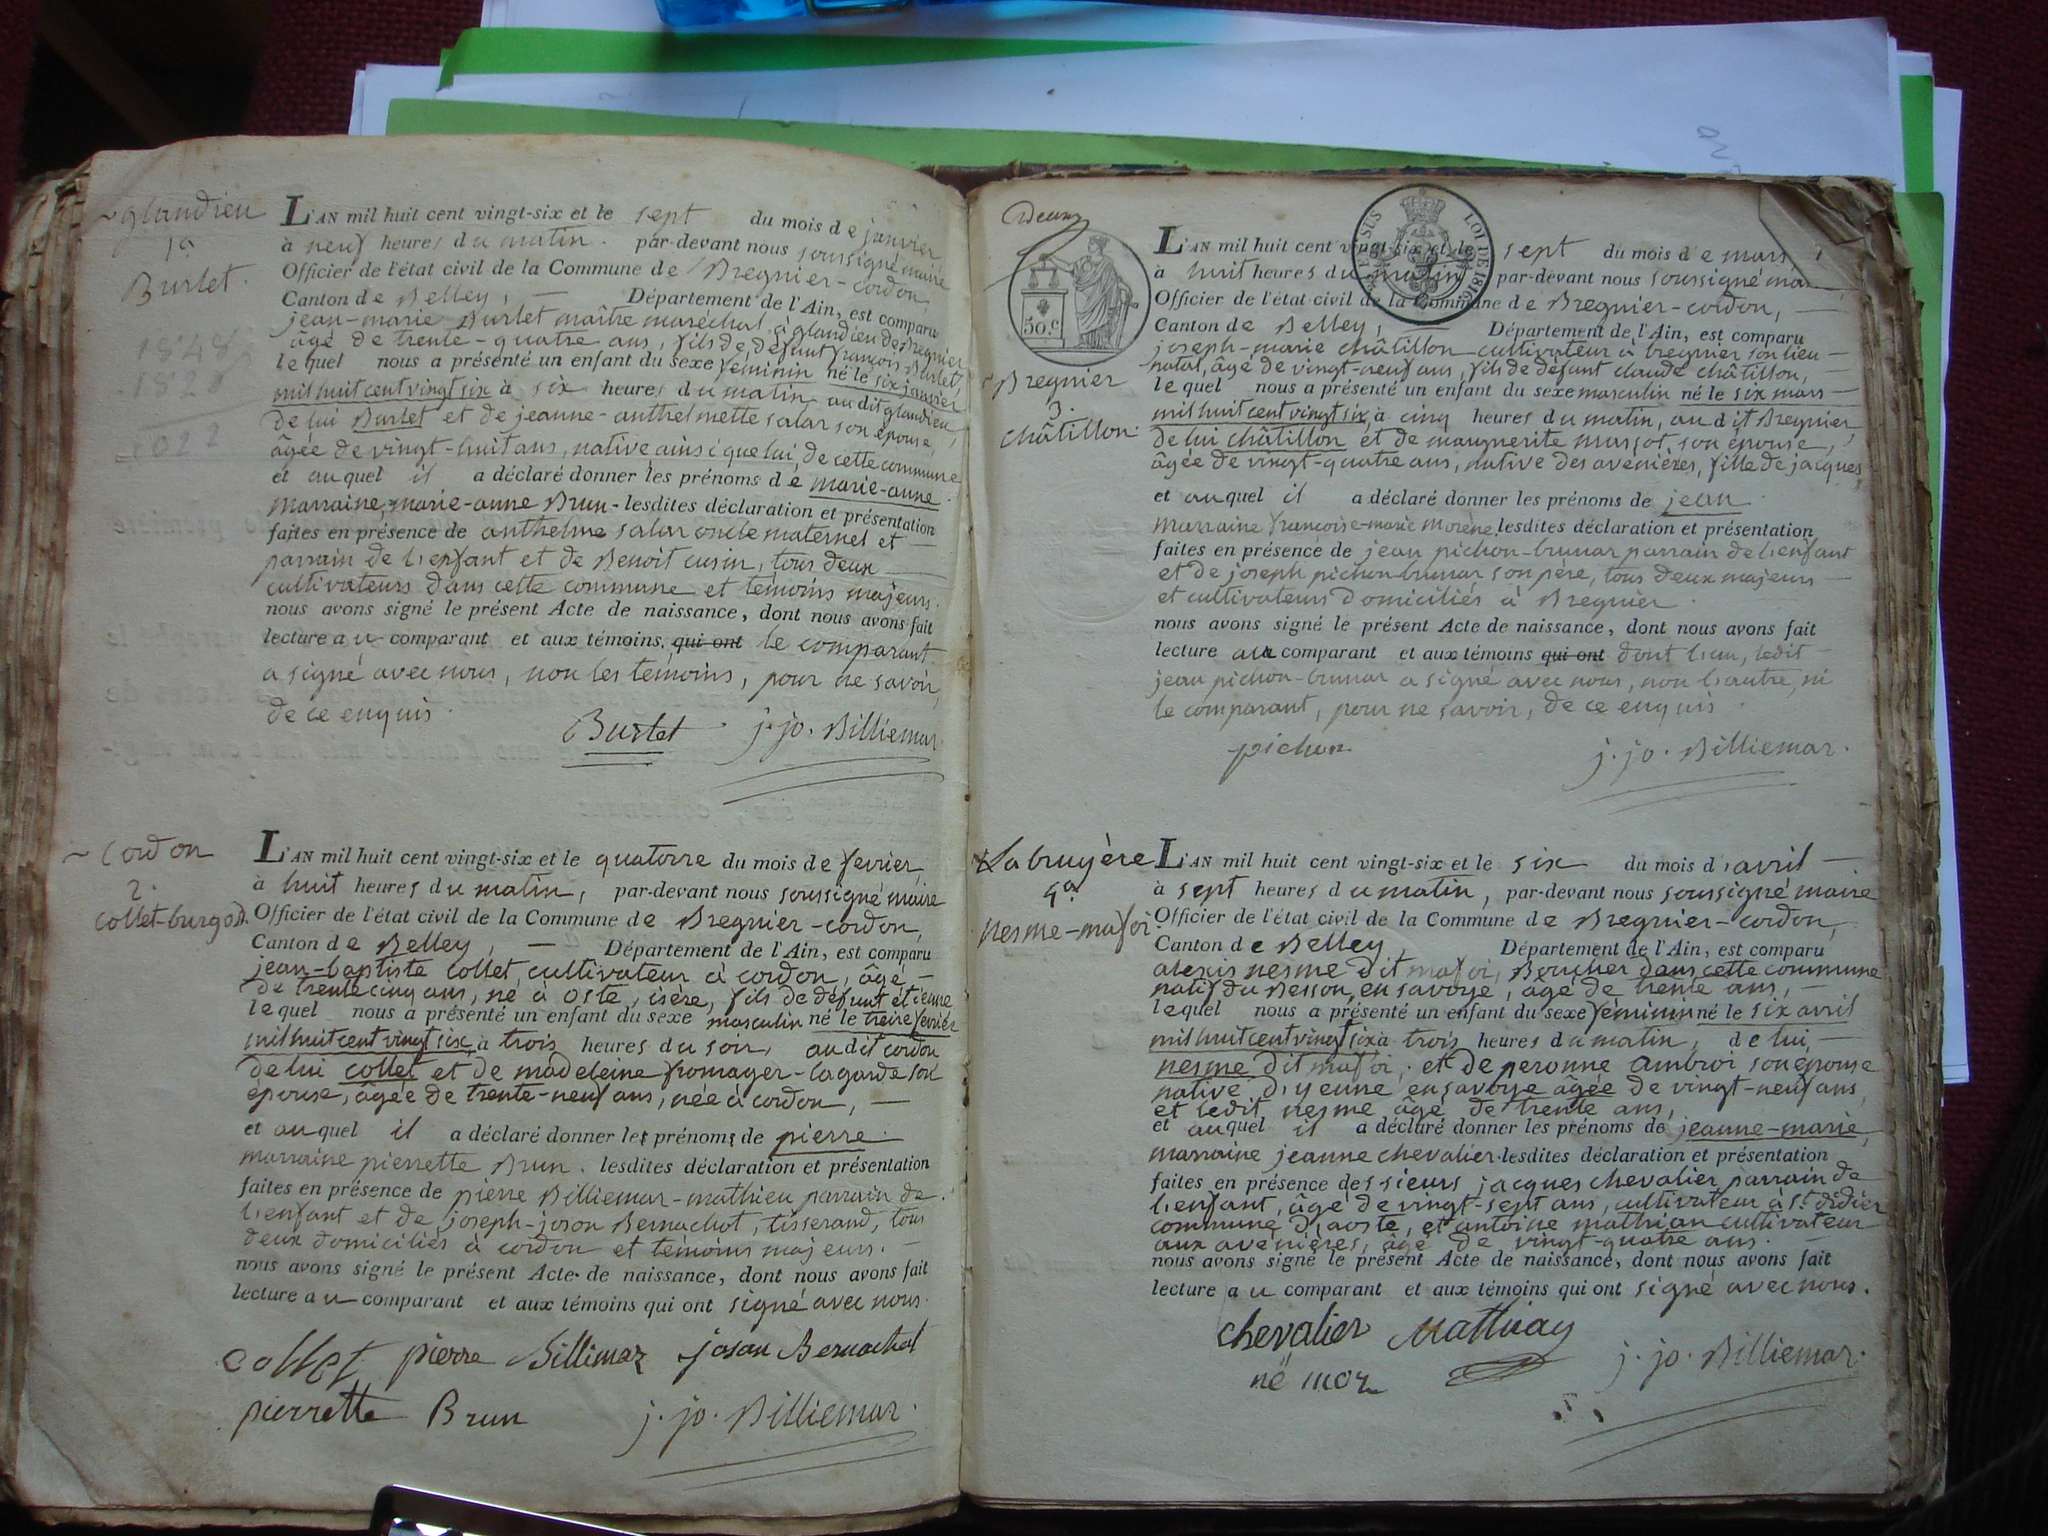 ~ glandieu
1er
Burlet.
L'AN mil huit cent vingt-six et le sept du mois de janvier
à neuf heures du matin. par-devant nous soussigné maire
Officier de l'état civil de la Commune de Bregnier-cordon,
Canton de Belley, — Département de l'Ain, est comparu
jean-marie Burlet maître maréchal à glandieu de Bregnier
âgé de trente-quatre ans, fils de défunt françois Burlet,
lequel nous a présenté un enfant du sexe feminin né le six janvier
mil huit cent vingt six à six heures du matin au dit glandieu,
de lui Burlet et de jeanne-anthelmette salar son épouse,
âgée de vingt-huit ans, native ainsi que lui, de cette commune
et auquel il a déclaré donner les prénoms de marie-anne.
marraine, marie-anne Brun - lesdites déclaration et présentation
faites en présence de anthelme salar oncle maternel et —
parrain de l'enfant et de Benoit cusin, tous deux —
cultivateurs dans cette commune et témoins majeurs.
nous avons signé le présent Acte de naissance, dont nous avons fait
lecture au comparant et aux témoins, qui ont le comparant
a signé avec nous, non les témoins, pour ne savoir,
de ce enquis.
Burlet j. jo. Billiemar.
~ Cordon
2.
Collet-burgod.
L'AN mil huit cent vingt-six et le quatorze du mois de fevrier,
à huit heures du matin, par-devant nous soussigné maire
Officier de l'état civil de la Commune de Bregnier-cordon,
Canton de Belley, — Département de l'Ain, est comparu
jean-baptiste collet, cultivateur à cordon, âgé —
de trente cinq ans, né à oste, isère, fils de défunt etienne
lequel nous a présenté un enfant du sexe masculin né le treize fevrier
mil huit cent vingt six, à trois heures du soir, au dit cordon
de lui collet et de madeleine fromager-lagarde son
épouse, âgée de trente-neuf ans, née à cordon, —
et auquel il a déclaré donner les prénoms de pierre.
marraine pierrette Brun. lesdites déclaration et présentation
faites en présence de pierre Billiemar-mathieu parrain de
l'enfant et de joseph-joson Bernachot, tisserand, tous
deux domiciliés à cordon et témoins majeurs. —
nous avons signé le présent Acte de naissance, dont nous avons fait
lecture au comparant et aux témoins qui ont signé avec nous.
collet pierre Billimaz josan Bernachot
pierrette Brun j. jo. Billiemar.
Deux
50.c
LOI DE 1816
Bregnier
3.
châtillon.
L'AN mil huit cent vingt-six et le sept du mois de mars
à huit heures du matin par-devant nous soussigné
Officier de l'état civil de la Commune de Bregnier-cordon, —
Canton de Belley, — Département de l'Ain, est comparu
joseph-marie châtillon cultivateur à bregnier son lieu —
natal, âgé de vingt-neuf ans, fils de défunt claude châtillon, —
lequel nous a présenté un enfant du sexe masculin né le six mars —
mil huit cent vingt six, à cinq heures du matin, au dit Bregnier
de lui châtillon et de marguerite mussot, son épouse,
âgée de vingt-quatre ans, native des avenières, fille de jacques
et auquel il a déclaré donner les prénoms de jean.
marraine françoise-marie morène. lesdites déclaration et présentation
faites en présence de jean pichon-brunar parrain de l'enfant
et de joseph pichon-brunar, son père, tous deux majeurs —
et cultivateurs domiciliés à Bregnier.
nous avons signé le présent Acte de naissance, dont nous avons fait
lecture au comparant et aux témoins qui ont dont l'un, ledit —
jean pichon-brunar a signé avec nous, non l'autre, ni
le comparant, pour ne savoir, de ce enquis.
pichon j. jo. Billiemar.
Labruyère
4e
nesme-mafoi.
L'AN mil huit cent vingt-six et le six du mois d'avril —
à sept heures du matin, par-devant nous soussigné maire
Officier de l'état civil de la Commune de Bregnier-cordon,
Canton de Belley, Département de l'Ain, est comparu
alexis nesme dit mafoi, Boucher dans cette commune
natif du Besson, en savoye, âgé de trente ans, —
lequel nous a présenté un enfant du sexe féminin né le six avril
mil huit cent vingt six à trois heures du matin, de lui —
nesme dit mafoi, et de peronne Ambroi son épouse
native d'yenne, en savoye âgée de vingt-neuf ans
et ledit nesme âgé de trente ans,
et auquel il a déclaré donner les prénoms de jeanne-marie,
marraine jeanne chevalier. lesdites déclaration et présentation
faites en présence des sieurs jacques chevalier parrain de
l'enfant, âgé de vingt-sept ans, cultivateur à St. didier
commune d'aoste, et antoine mathian cultivateur
aux avénières, âgé de vingt-quatre ans. —
nous avons signé le présent Acte de naissance, dont nous avons fait
lecture au comparant et aux témoins qui ont signé avec nous.
chevalier
j. jo. Billiemar.